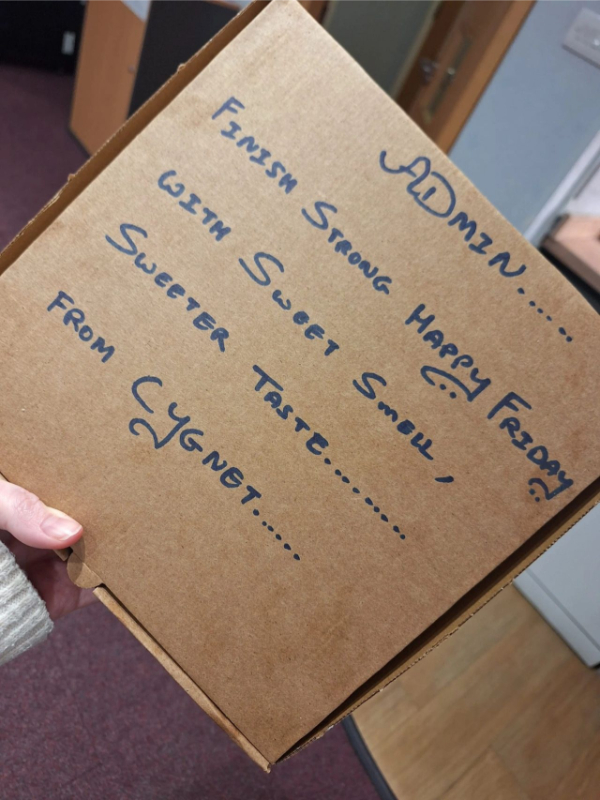 ADMIN.....
FINISH STRONG HAPPY FRIDAY
WITH SWEET SMELL,
SWEETER TASTE........
FROM CYGNET.....